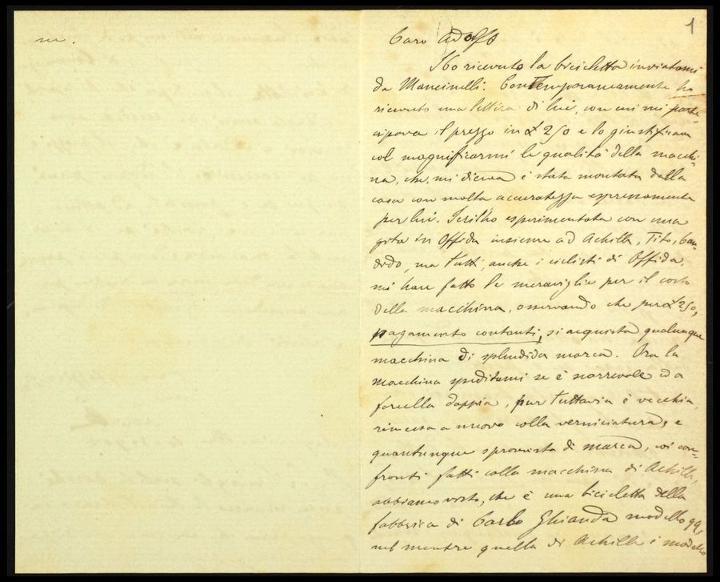 m.
1
Caro Adolfo
Ho ricevuto la bicicletta inviatami
da Mancinelli. Contemporaneamente ho
ricevuto una lettera di lui, con cui mi parte
cipava il prezzo in £ 250 e lo giustificava
col magnificarmi le qualità della macchi-
na, che, mi diceva è stata montata dalla
casa con molta accuratezza espressamente
per lui. Io l'ho esperimentata con una
gita in Offida insieme ad Achille, Tito,
ma tutti, anche i ciclisti di Offida,
mi han fatto le meraviglie per il costo
della macchina, osservando che per £ 250,
pagamento contanti, si acquista qualunque
macchina di splendida marca. Ora la
macchina speditami se è scorrevole ed a
forcella doppia, pur tuttavia è vecchia,
rimessa a nuovo colla verniciatura, e
quantunque sprovvista di marca, coi con-
fronti fatti colla macchina di Achille,
abbiamo visto, che è una bicicletta della
fabbrica di Carlo Ghianda modello 99,
nel mentre quella di Achille è modello